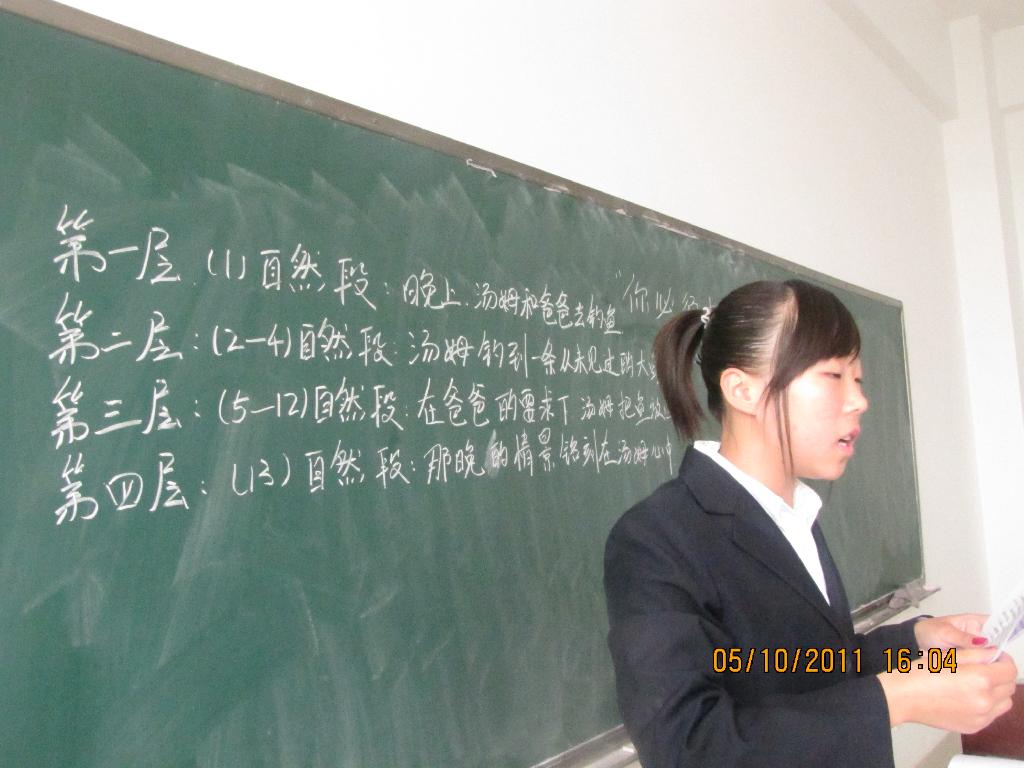 第一层 (1)自然段：晚上.汤姆和爸爸去钓鱼 "你必须
第二层：(2-4)自然段：汤姆钓到一条从未见过的大
第三层：(5-12)自然段：在爸爸的要求下汤姆把鱼放
第四层：(13)自然段：那晚的情景铭刻在汤姆心中
05/10/2011 16:04